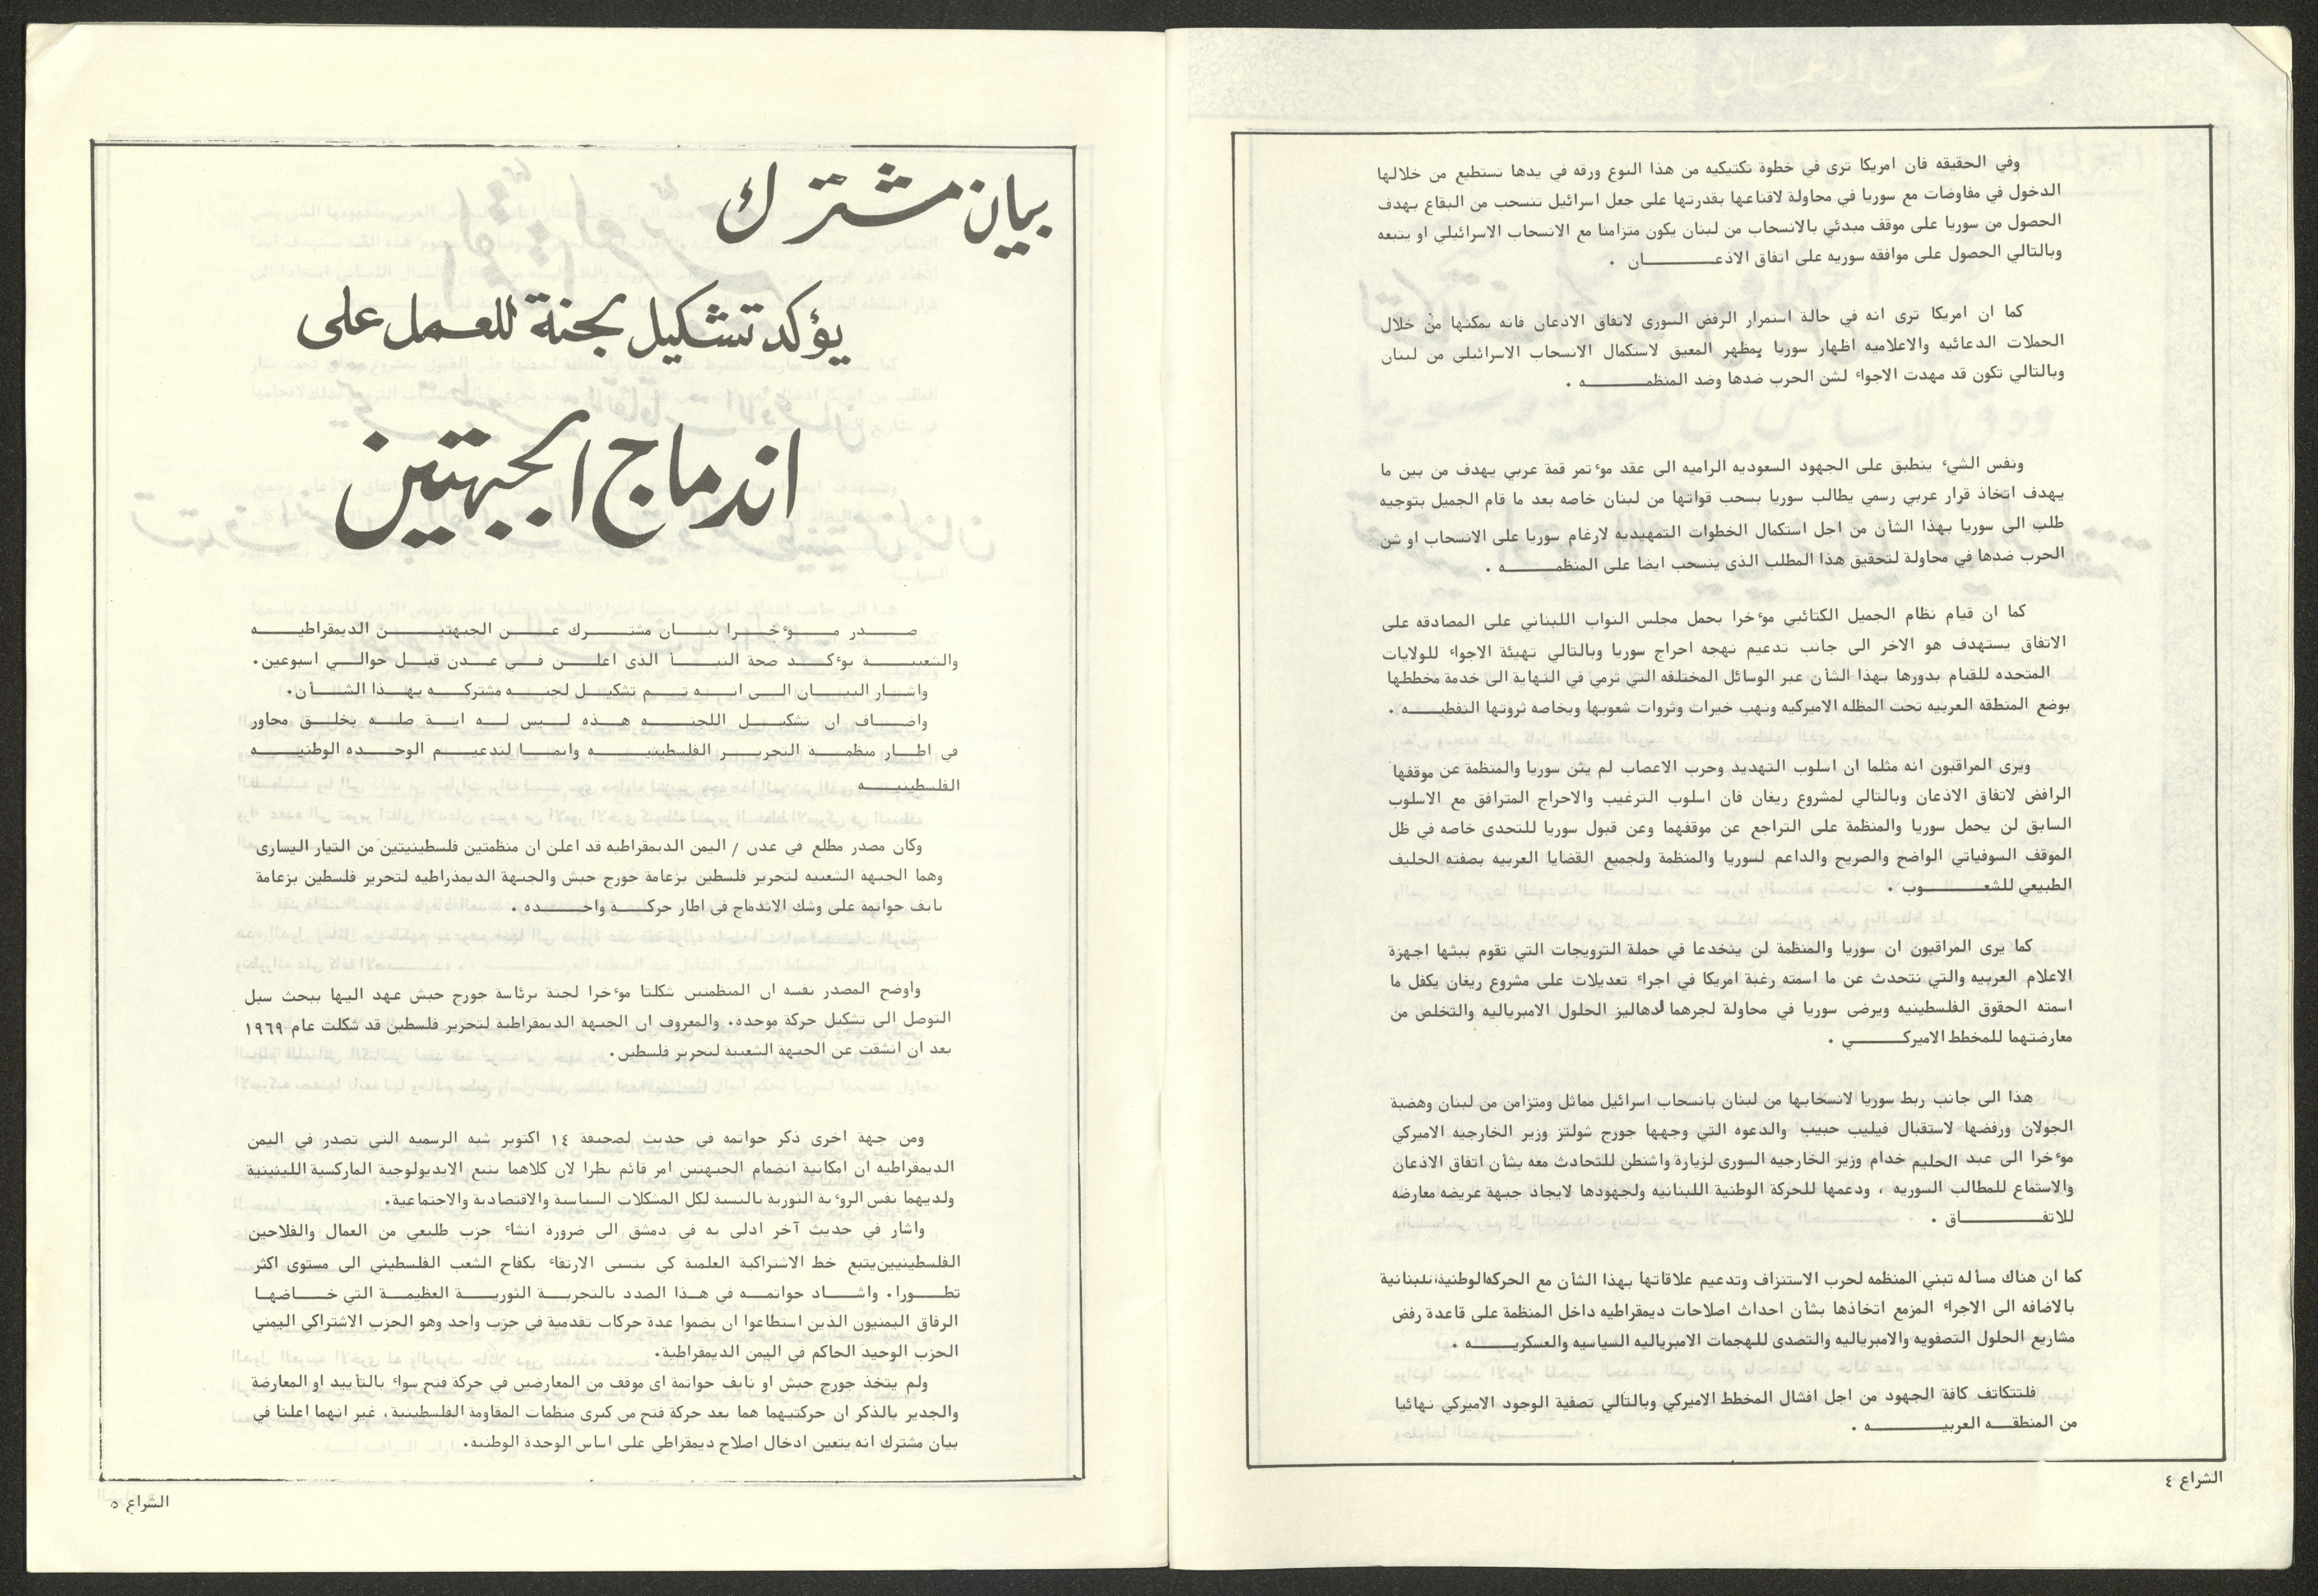 وفي الحقيقه فان امريكا ترى في خطوة تكتيكيه من هذا النوع ورقه في يدها تستطيع من خلالها
الدخول في مفاوضات مع سوريا في محاولة لاقناعها بقدرتها على جعل اسرائيل تنسحب من البقاع بهدف
الحصول من سوريا على موقف مبدئي بالانسحاب من لبنان يكون متزامنا مع الانسحاب الاسرائيلي او يتبعه
وبالتالي الحصول على موافقه سوريه على اتفاق الاذعـــــــان .
كما ان امريكا ترى انه في حالة استمرار الرفض السورى لاتفاق الاذعان فانه يمكنها من خلال
الحملات الدعائيه والاعلاميه اظهار سوريا بمظهر المعيق لاستكمال الانسحاب الاسرائيلى من لبنان
وبالتالي تكون قد مهدت الاجواء لشن الحرب ضدها وضد المنظمـــــــه .
ونفس الشيء ينطبق على الجهود السعوديه الراميه الى عقد موءتمر قمة عربي يهدف من بين ما
يهدف اتخاذ قرار عربي رسمي يطالب سوريا بسحب قواتها من لبنان خاصه بعد ما قام الجميل بتوجيه
طلب الى سوريا بهذا الشأن من اجل استكمال الخطوات التمهيديه لارغام سوريا على الانسحاب او شن
الحرب ضدها في محاولة لتحقيق هذا المطلب الذى ينسحب ايضا على المنظمــــــه .
كما ان قيام نظام الجميل الكتائبي موءخرا بحمل مجلس النواب اللبناني على المصادقه على
الاتفاق يستهدف هو الاخر الى جانب تدعيم نهجه احراج سوريا وبالتالي تهيئة الاجواء للولايات
المتحده للقيام بدورها بهذا الشأن عبر الوسائل المختلفه التي ترمي في النهاية الى خدمة مخططها
بوضع المنطقه العربيه تحت المظله الاميركيه ونهب خيرات وثروات شعوبها وبخاصه ثروتها النفطيـــــه .
ويرى المراقبون انه مثلما ان اسلوب التهديد وحرب الاعصاب لم يثن سوريا والمنظمة عن موقفها
الرافض لاتفاق الاذعان وبالتالي لمشروع ريغان فان اسلوب الترغيب والاحراج المترافق مع الاسلوب
السابق لن يحمل سوريا والمنظمة على التراجع عن موقفهما وعن قبول سوريا للتحدى خاصه في ظل
الموقف السوفياتي الواضح والصريح والداعم لسوريا والمنظمة ولجميع القضايا العربيه بصفته الحليف
الطبيعي للشعـــــــوب .
كما يرى المراقبون ان سوريا والمنظمة لن ينخدعا في حملة الترويجات التي تقوم ببثها اجهزة
الاعلام العربيه والتي تتحدث عن ما اسمته رغبة امريكا في اجراء تعديلات على مشروع ريغان يكفل ما
اسمته الحقوق الفلسطينيه ويرضى سوريا في محاولة لجرهما لدهاليز الحلول الامبرياليه والتخلص من
معارضتهما للمخطط الاميركــــــــي .
هذا الى جانب ربط سوريا لانسحابها من لبنان بانسحاب اسرائيل مماثل ومتزامن من لبنان وهضبة
الجولان ورفضها لاستقبال فيليب حبيب والدعوه التي وجهها جورج شولتز وزير الخارجيه الاميركي
موءخرا الى عبد الحليم خدام وزير الخارجيه السورى لزيارة واشنطن للتحادث معه بشأن اتفاق الاذعان
والاستماع للمطالب السوريه ، ودعمها للحركة الوطنية اللبنانيه ولجهودها لايجاد جبهة عريضه معارضه
للاتفـــــــــاق .
كما ان هناك مسأله تبني المنظمه لحرب الاستنزاف وتدعيم علاقاتها بهذا الشأن مع الحركه الوطنية اللبنانية
بالاضافه الى الاجراء المزمع اتخاذها بشأن احداث اصلاحات ديمقراطيه داخل المنظمة على قاعدة رفض
مشاريع الحلول التصفويه والامبرياليه والتصدى للهجمات الامبرياليه السياسيه والعسكريـــــــه .
فلتتكاتف كافة الجهود من اجل افشال المخطط الاميركي وبالتالي تصفية الوجود الاميركي نهائيا
من المنطقـــه العربيـــــــــــه .
الشراع ٤
بيان مشترك
يؤكد تشكيل لجنة للعمل على
اندماج الجبهتين
صــــدر مــــوءخــــرا بيــــان مشتــــرك عــــن الجبهتيــــــن الديمقراطيـــــه
والشعبيــــــة يوءكــــد صحة النبــــأ الذى اعلــــن فــــي عــــدن قبــــل حوالــــي اسبوعين.
واشــار البيــــان الــــى انــــه تــــم تشكيــــل لجنــــه مشتركــــه بهــــذا الشــــأن.
واضــــاف ان تشكيــــل اللجنــــه هــــذه لــــيس لــــه ايــــة صلــــه بخلــــق محاور
في اطــار منظمــــه التحريــــر الفلسطينيــــه وانمــــا لتدعيــــم الوحــــده الوطنيــــه
الفلسطينيــــه
وكان مصدر مطلع في عدن / اليمن الديمقراطيه قد اعلن ان منظمتين فلسطينيتين من التيار اليسارى
وهما الجبهه الشعبيه لتحرير فلسطين بزعامة جورج حبش والجبهة الديمذراطيه لتحرير فلسطين بزعامة
نايف حواتمة على وشك الاندماج في اطار حركـــة واحــــده .
واوضح المصدر نفسه ان المنظمتين شكلتا موءخرا لجنة برئاسة جورج حبش عهد اليها ببحث سبل
التوصل الى تشكيل حركة موحده. والمعروف ان الجبهة الديمقراطية لتحرير فلسطين قد شكلت عام ١٩٦٩
بعد ان انشقت عن الجبهة الشعبية لتحرير فلسطين.
ومن جهة اخرى ذكر حواتمه في حديث لصحيفة ١٤ اكتوبر شبه الرسميه التي تصدر في اليمن
الديمقراطيه ان امكانية انضمام الجبهتين امر قائم نظرا لان كلاهما يتبع الايديولوجية الماركسية اللينينية
ولديهما نفس الروءية الثورية بالنسبة لكل المشكلات السياسية والاقتصادية والاجتماعية.
واشار في حديث آخر ادلى به في دمشق الى ضرورة انشاء حزب طليعي من العمال والفلاحين
الفلسطينيين يتبع خط الاشتراكية العلمية كي يتسنى الارتقاء بكفاح الشعب الفلسطيني الى مستوى اكثر
تطــــورا. واشــــاد حواتمــــه في هــذا الصدد بالتجربــــة الثوريــــة العظيمــــة التي خــــاضهــا
الرفاق اليمنيون الذين استطاعوا ان يضموا عدة حركات تقدمية في حزب واحد وهو الحزب الاشتراكي اليمني
الحزب الوحيد الحاكم في اليمن الديمقراطية.
ولم يتخذ جورج حبش او نايف حواتمة اى موقف من المعارضين في حركة فتح سواء بالتأييد او المعارضة
والجدير بالذكر ان حركتيهما هما بعد حركة فتح من كبرى منظمات المقاومة الفلسطينية، غير انهما اعلنا في
بيان مشترك انه يتعين ادخال اصلاح ديمقراطي على اساس الوحدة الوطنية.
الشراع ٥